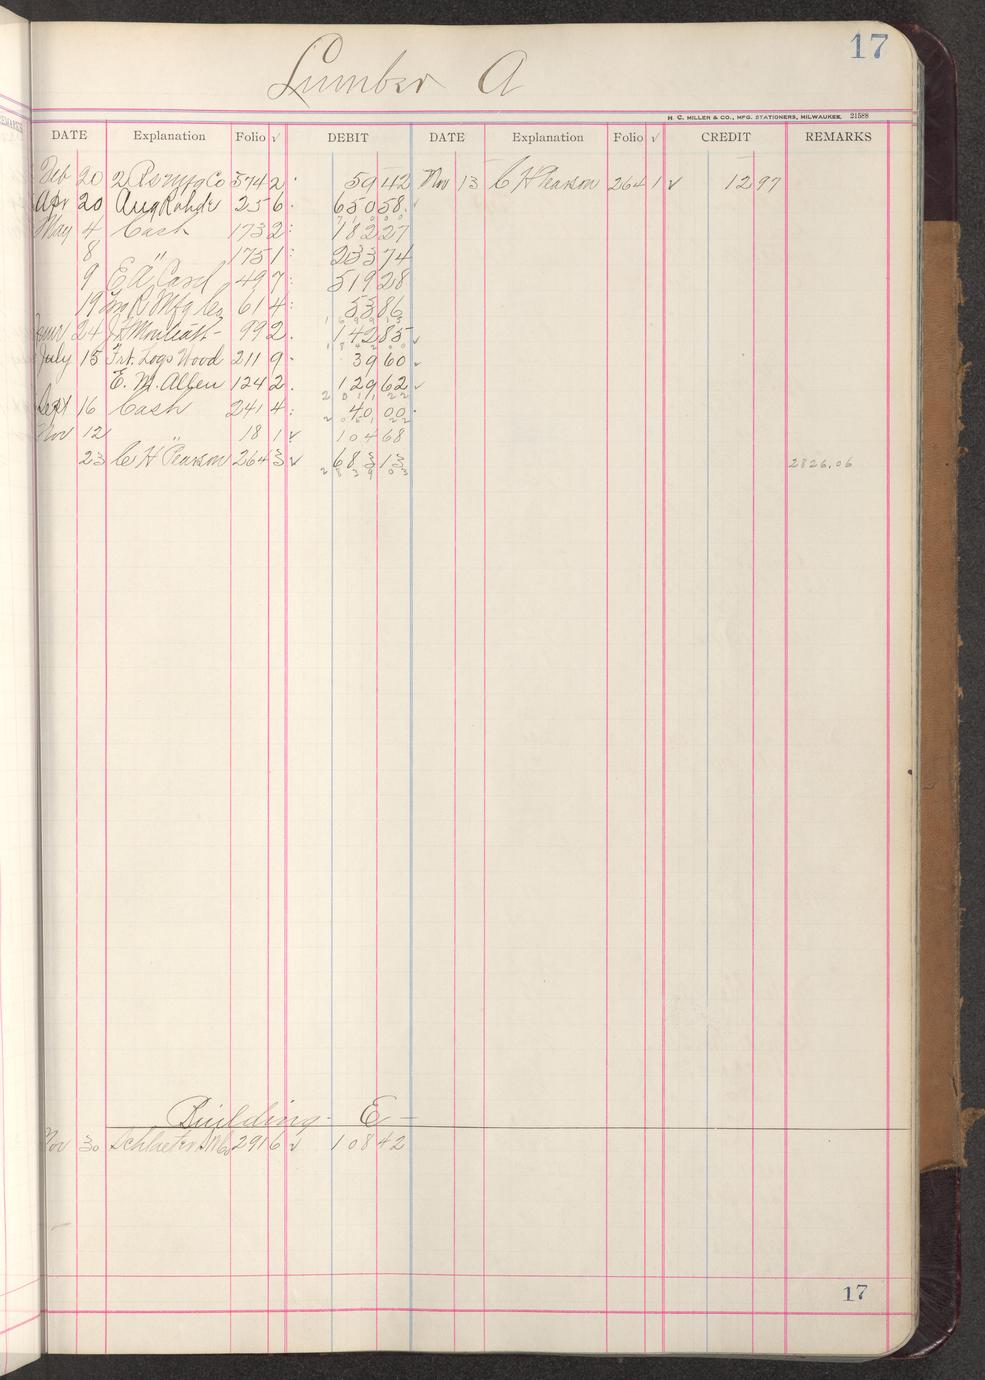 17
Lumber A
H. C. MILLER & CO., MFG. STATIONERS, MILWAUKEE, 21588
DATE Explanation Folio √ DEBIT DATE Explanation Folio √ CREDIT REMARKS
Feb 20 Mfg Co 574 2 59 42 Nov 13 C H Pearson 264 1 √ 12 97
Apr 20 Aug Rohde 25 6 650 58
May 4 Cash 173 2 182 27
8 " 175 1 233 74
9 E A Card 49 7 519 28
19 Mfg Co 61 4 53 86
24 99 2 142 85
July 15 Frt. Logs Wood 211 9 39 60
E. M. Allen 124 2 129 62
2011 22
Sept 16 Cash 241 4 40 00
2051 22
Nov 12 " 18 1 √ 104 68
23 C H Pearson 264 3 √ 683 13 2826.06
2839 03
Building E
Nov 30 291 6 √ 108 42
17